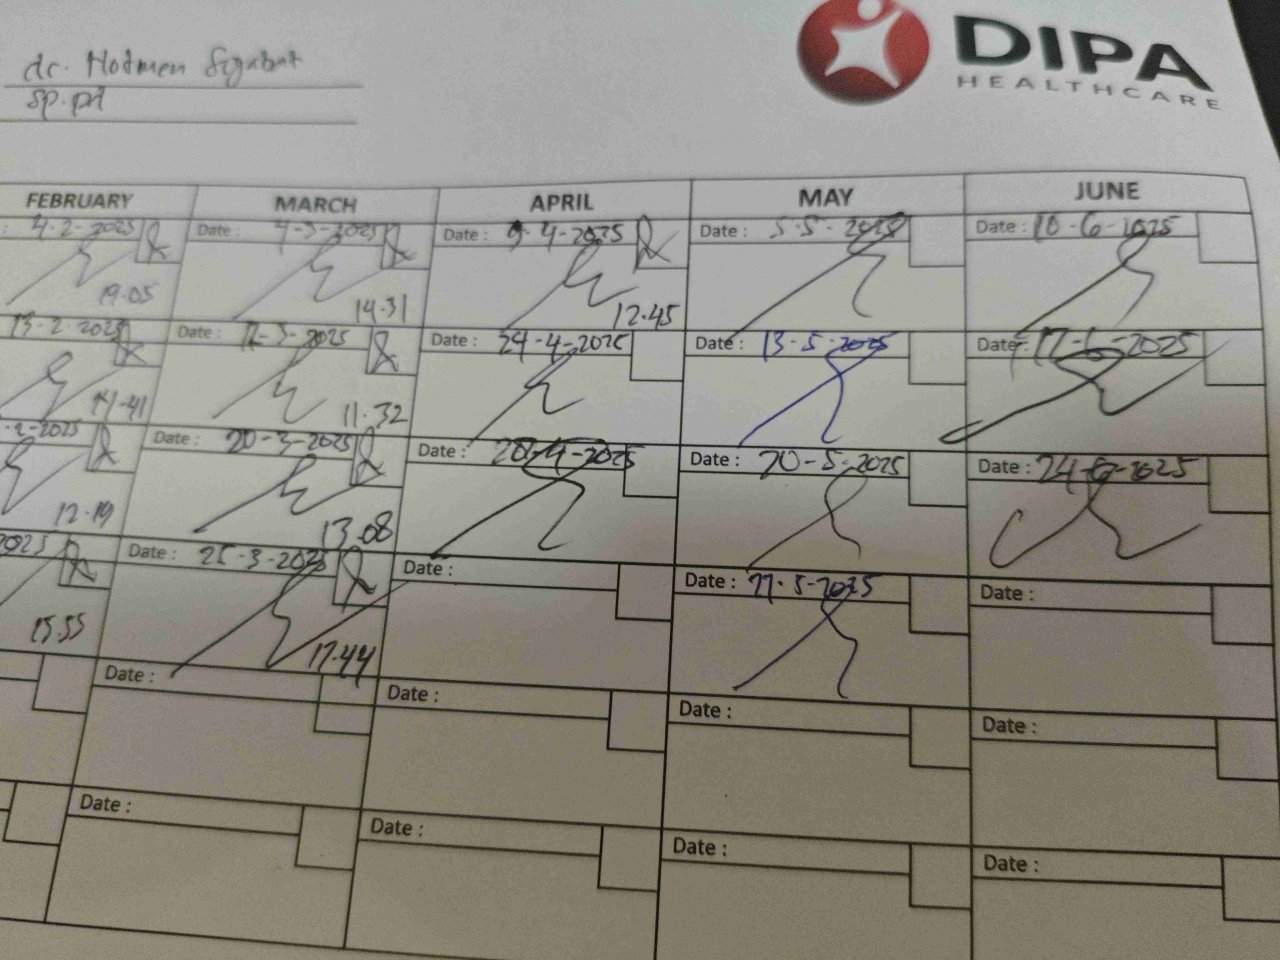 dr. Hotmen Sigabat
Sp.pd
DIPA
HEALTHCARE
FEBRUARY MARCH APRIL MAY JUNE
4-2-2025 Date : 4-3-2025 Date : 9-4-2025 Date : 5-5-2025 Date : 10-6-2025
19.05 14.31 12.45
13-2-2025 Date : 12-3-2025 Date : 24-4-2025 Date : 13-5-2025 Date : 17-6-2025
14-41 11.32
-2-2025 Date : 20-3-2025 Date : 28-4-2025 Date : 20-5-2025 Date : 24-6-2025
12-19 13.08
2025 Date : 25-3-2025 Date : Date : 27-5-2025 Date :
15.55 17.44
Date : Date : Date : Date :
Date : Date : Date : Date :